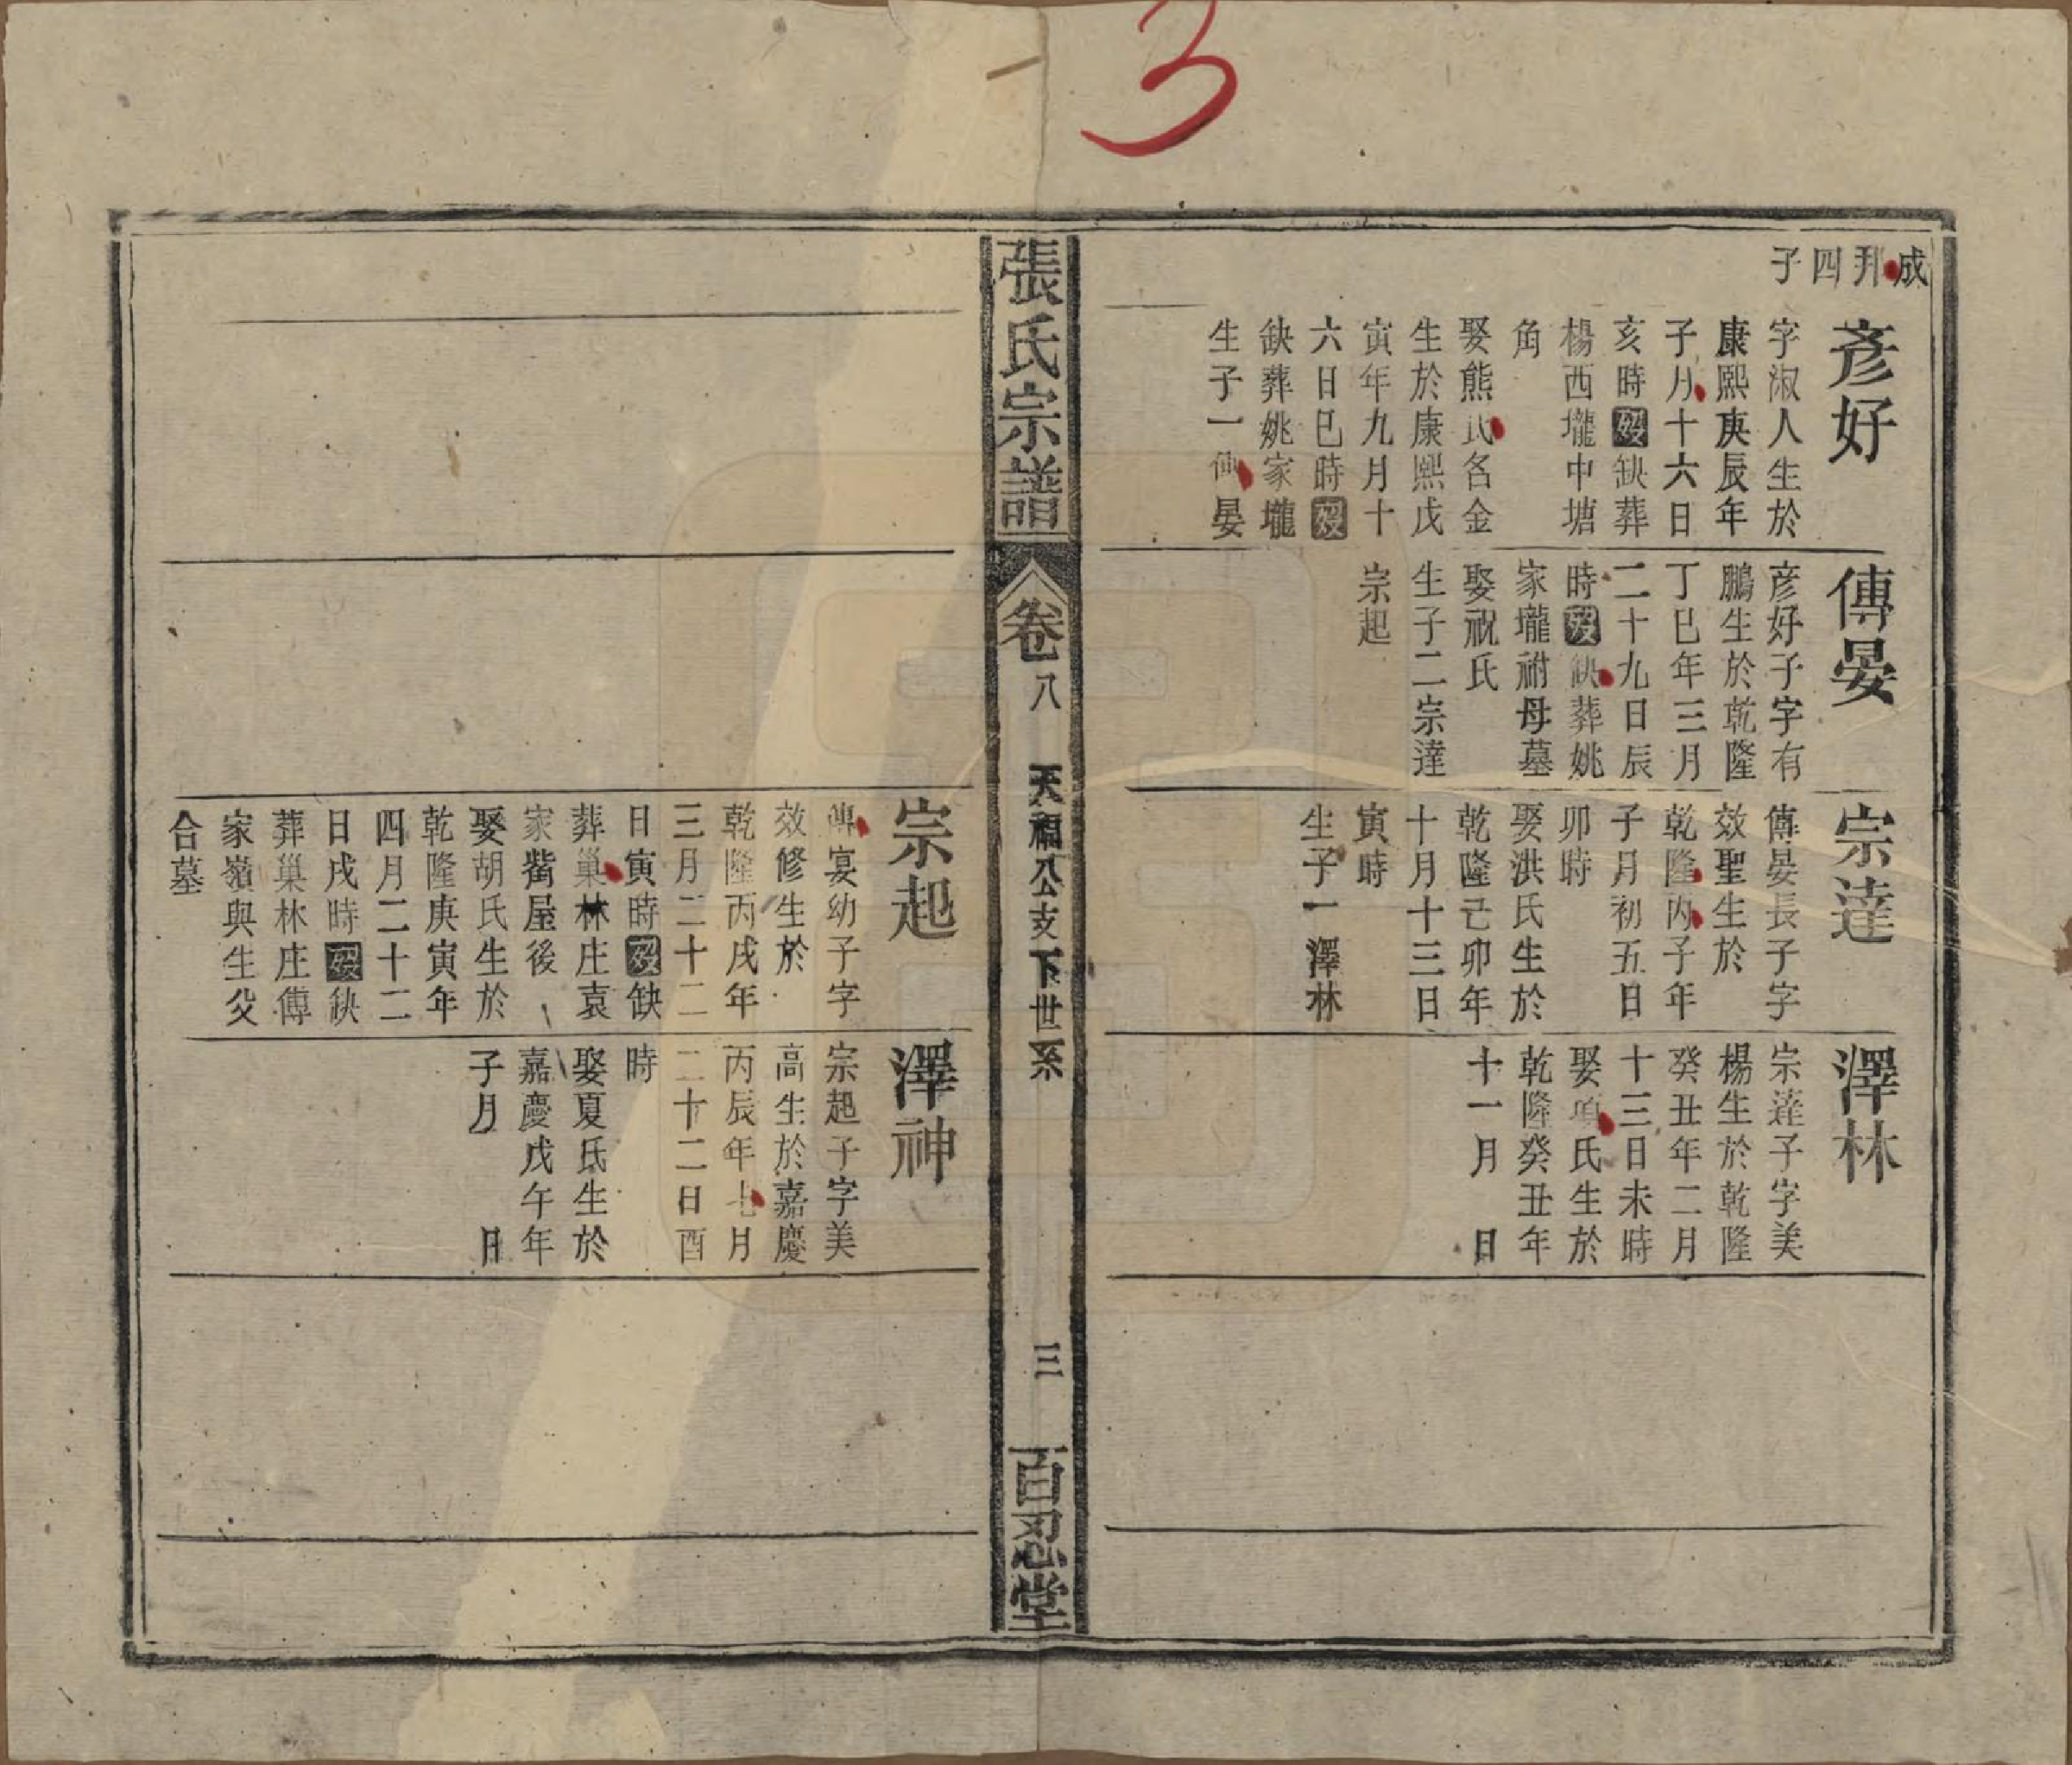 3
成邦四子
彥好
字淑人生於
康熙庚辰年
子月十六日
亥時歿缺葬
楊西壠中塘
角
娶熊氏名金
生於康熙戊
寅年九月十
六日巳時歿
缺葬姚家壠
生子一傳晏
傳晏
彦好子字有
鵬生於乾隆
丁巳年三月
二十九日辰
時歿缺葬姚
家壠祔母墓
娶祝氏
生子二宗達
宗起
宗達
傳晏長子字
效聖生於
乾隆丙子年
子月初五日
卯時
娶洪氏生於
乾隆己卯年
十月十三日
寅時
生子一澤林
澤林
宗達子字美
楊生於乾隆
癸丑年二月
十三日未時
娶項氏生於
乾隆癸丑年
十一月 日
張氏宗譜
卷八
天福公支下世系
三
百忍堂
宗起
傳宴幼子字
效修生於
乾隆丙戌年
三月二十二
日寅時歿缺
葬巢林庄袁
家觜屋後
娶胡氏生於
乾隆庚寅年
四月二十二
日戌時歿缺
葬巢林庄傳
家嶺與生父
合墓
澤神
宗起子字美
高生於嘉慶
丙辰年七月
二十二日酉
時
娶夏氏生於
嘉慶戊午年
子月 日